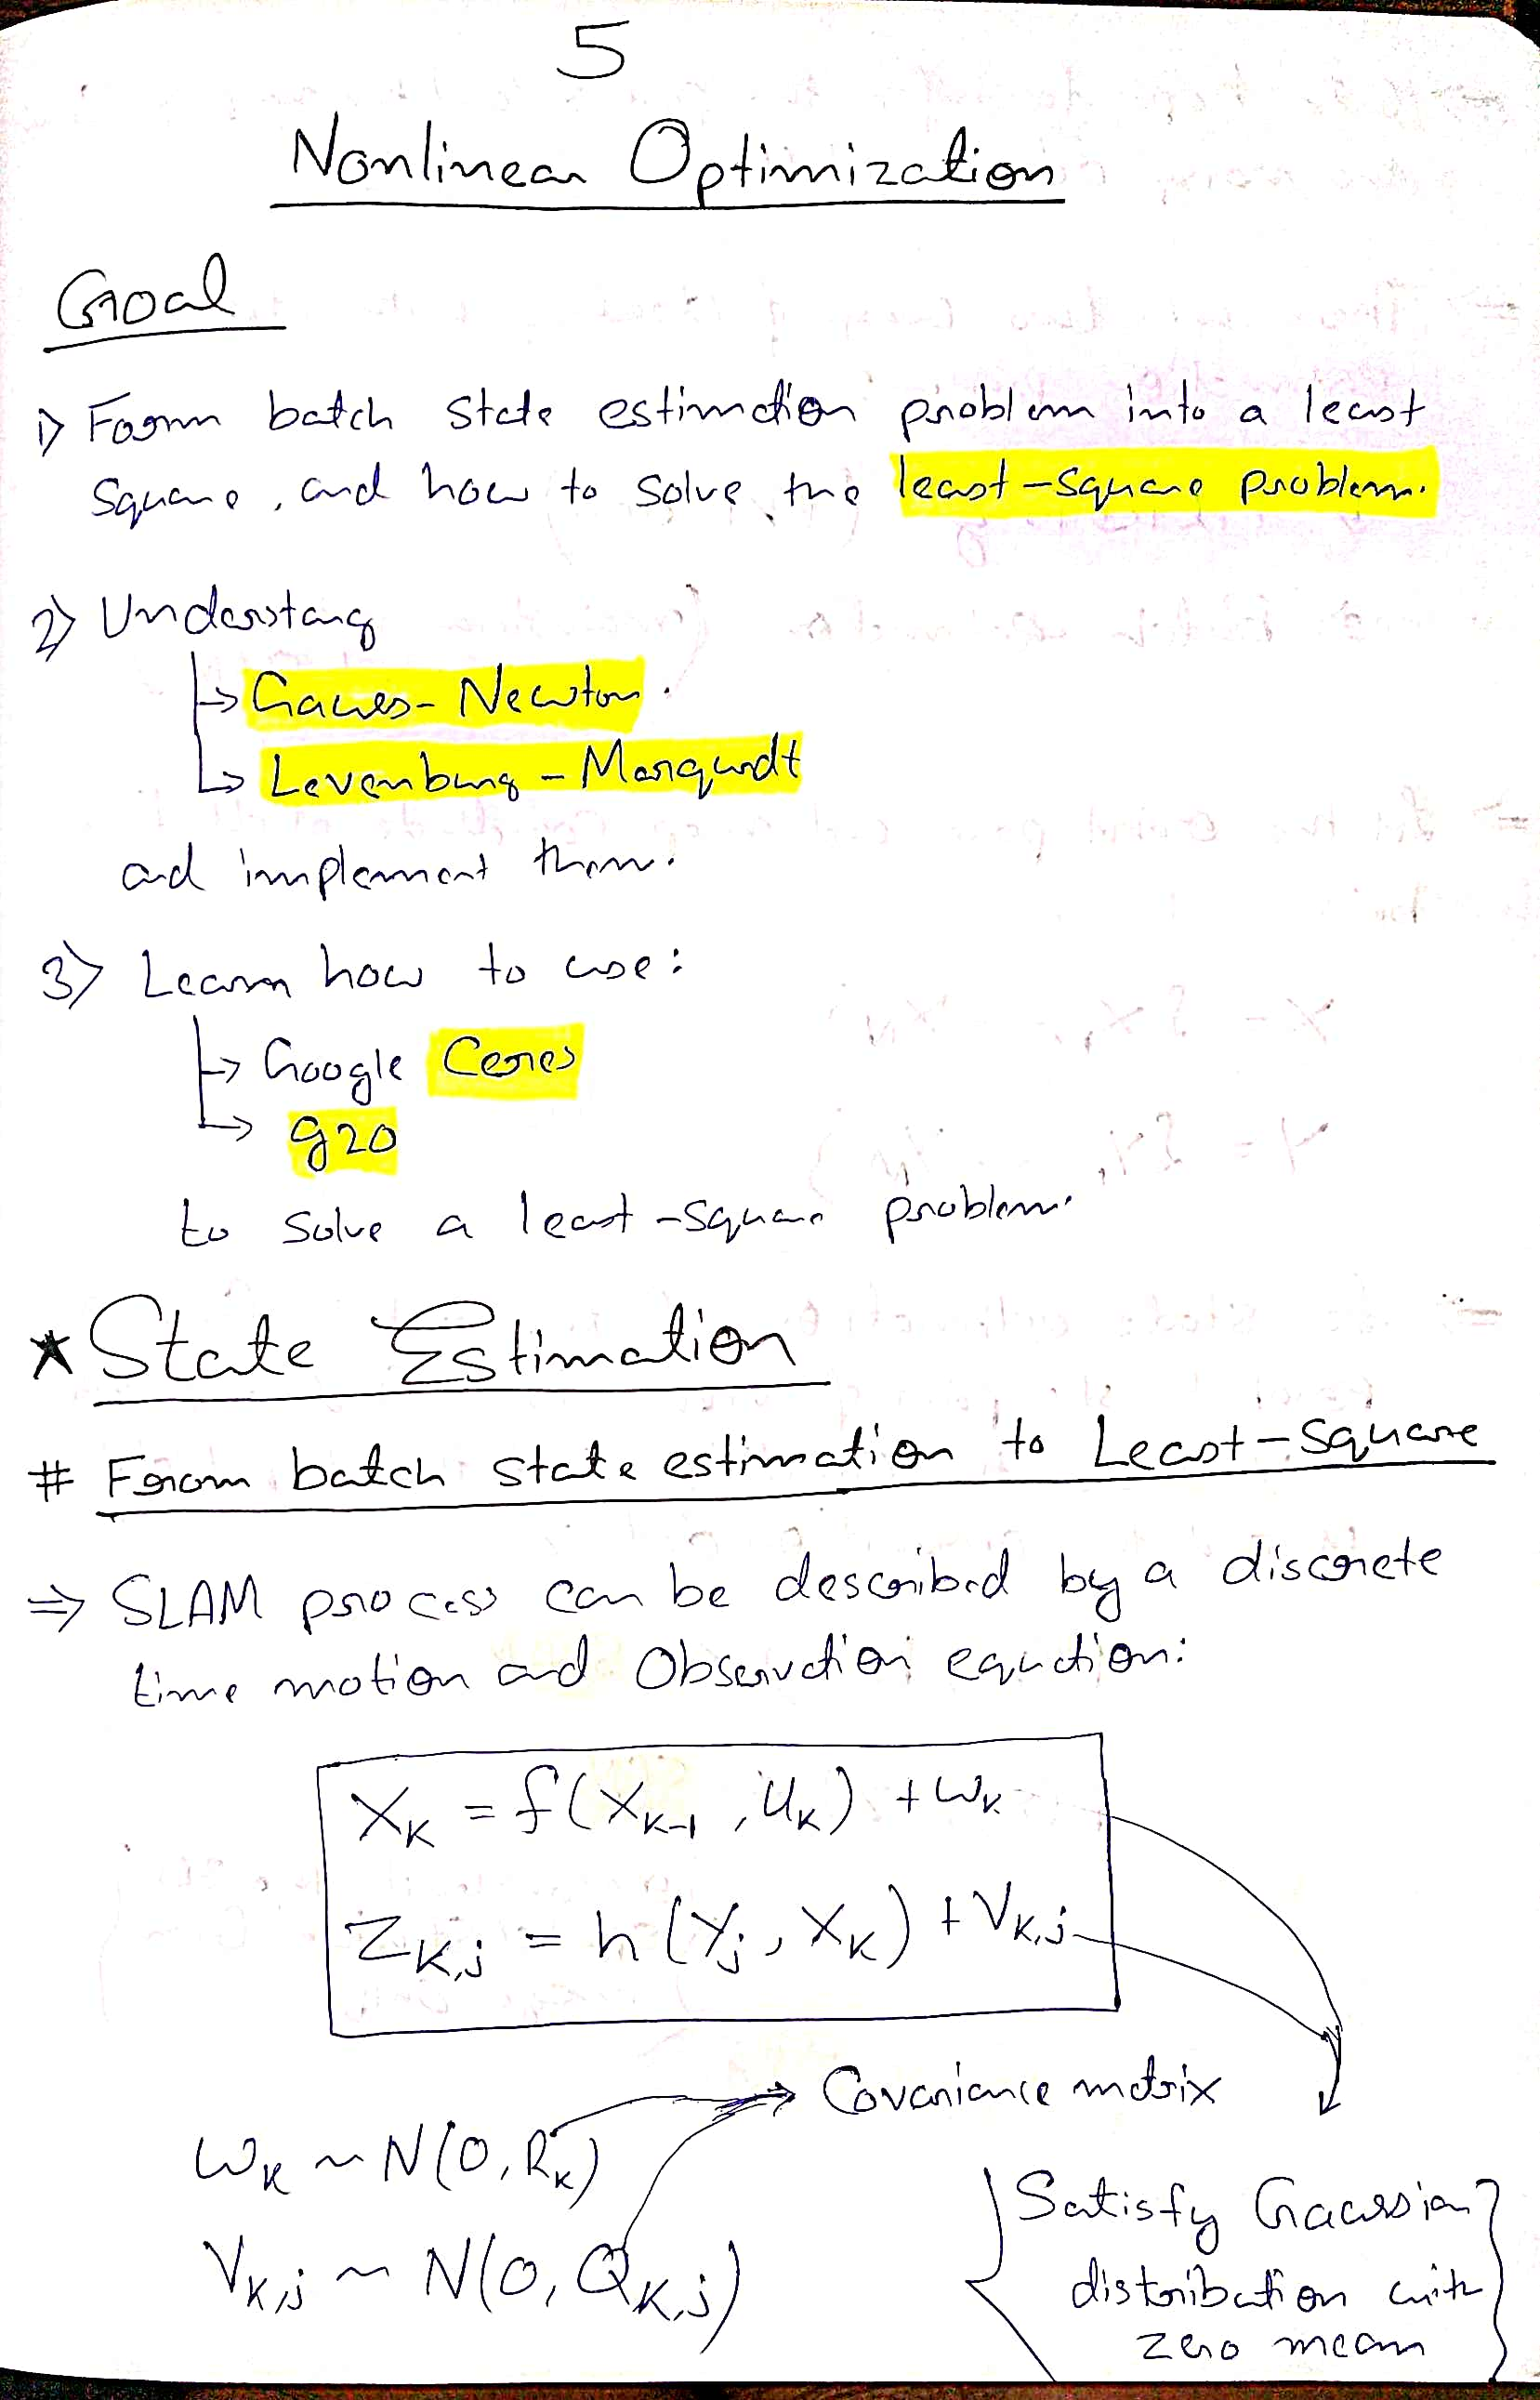 5
Nonlinear Optimization
Goal
1) Form batch state estimation problem into a least
square, and how to solve the least-square problem.
2) Understang
↳ Gauss-Newton.
↳ Levenburg-Marqurdt
and implement them.
3) Learn how to use:
↳ Google Ceres
↳ g2o
to solve a least-square problem.
* State Estimation
# From batch state estimation to Least-Square
⇒ SLAM process can be described by a discrete
time motion and Observation equation:
X_K = f(X_{K-1}, U_K) + W_K
Z_{K,j} = h(Y_j, X_K) + V_{K,j}
→ Covariance matrix
W_K ~ N(0, R_K)
V_{K,j} ~ N(0, Q_{K,j})
{Satisfy Gaussian
distribution with
zero mean}